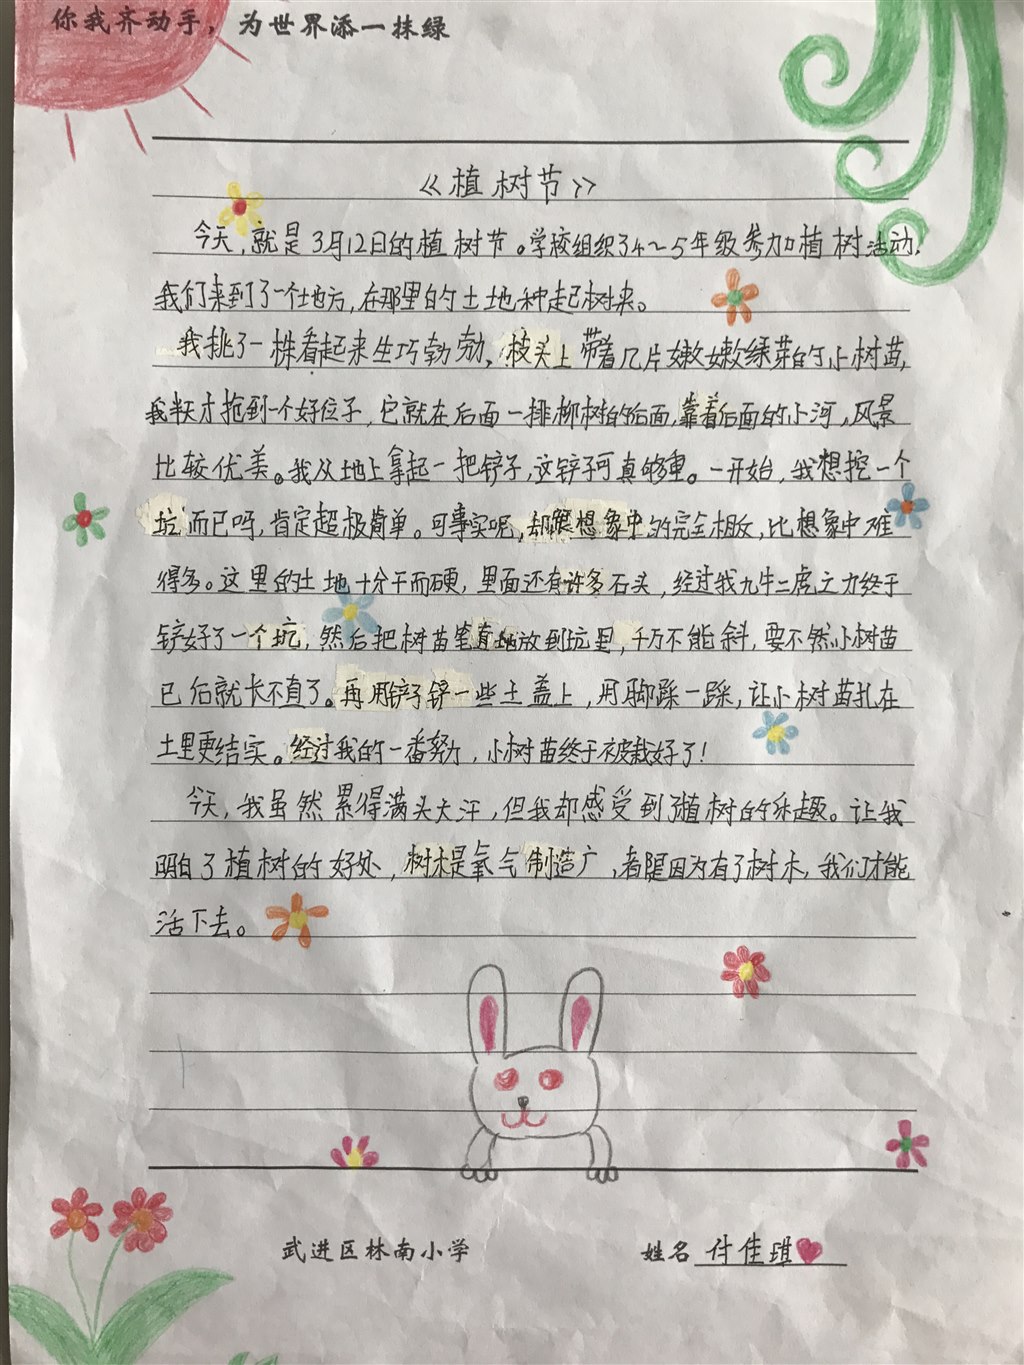 你我齐动手，为世界添一抹绿
《植树节》
今天，就是3月12日的植树节。学校组织34~5年级参加植树活动，
我们来到了一个地方，在那里的土地种起树来。
我挑了一株看起来生巧勃勃，枝头上带着几片嫩嫩绿芽的小树苗，
我半天才抢到一个好位子，它就在后面一排柳树的后面，靠着后面的小河，风景
比较优美。我从地上拿起一把铲子，这铲子可真够重。一开始，我想挖一个
坑而已吗，肯定超极简单。可事实呢，却跟想象中的完全相反，比想象中难
得多。这里的土地十分干而硬，里面还有许多石头，经过我九牛二虎之力终于
铲好了一个坑，然后把树苗笔直地放到坑里，千万不能斜，要不然小树苗
已后就长不直了。再用铲子铲一些土盖上，用脚踩一踩，让小树苗扎在
土里更结实。经过我的一番努力，小树苗终于被栽好了！
今天，我虽然累得满头大汗，但我却感受到了植树的乐趣。让我
明白了植树的好处，树木是氧气制造厂，因为有了树木，我们才能
活下去。
武进区林南小学
姓名 付佳琪